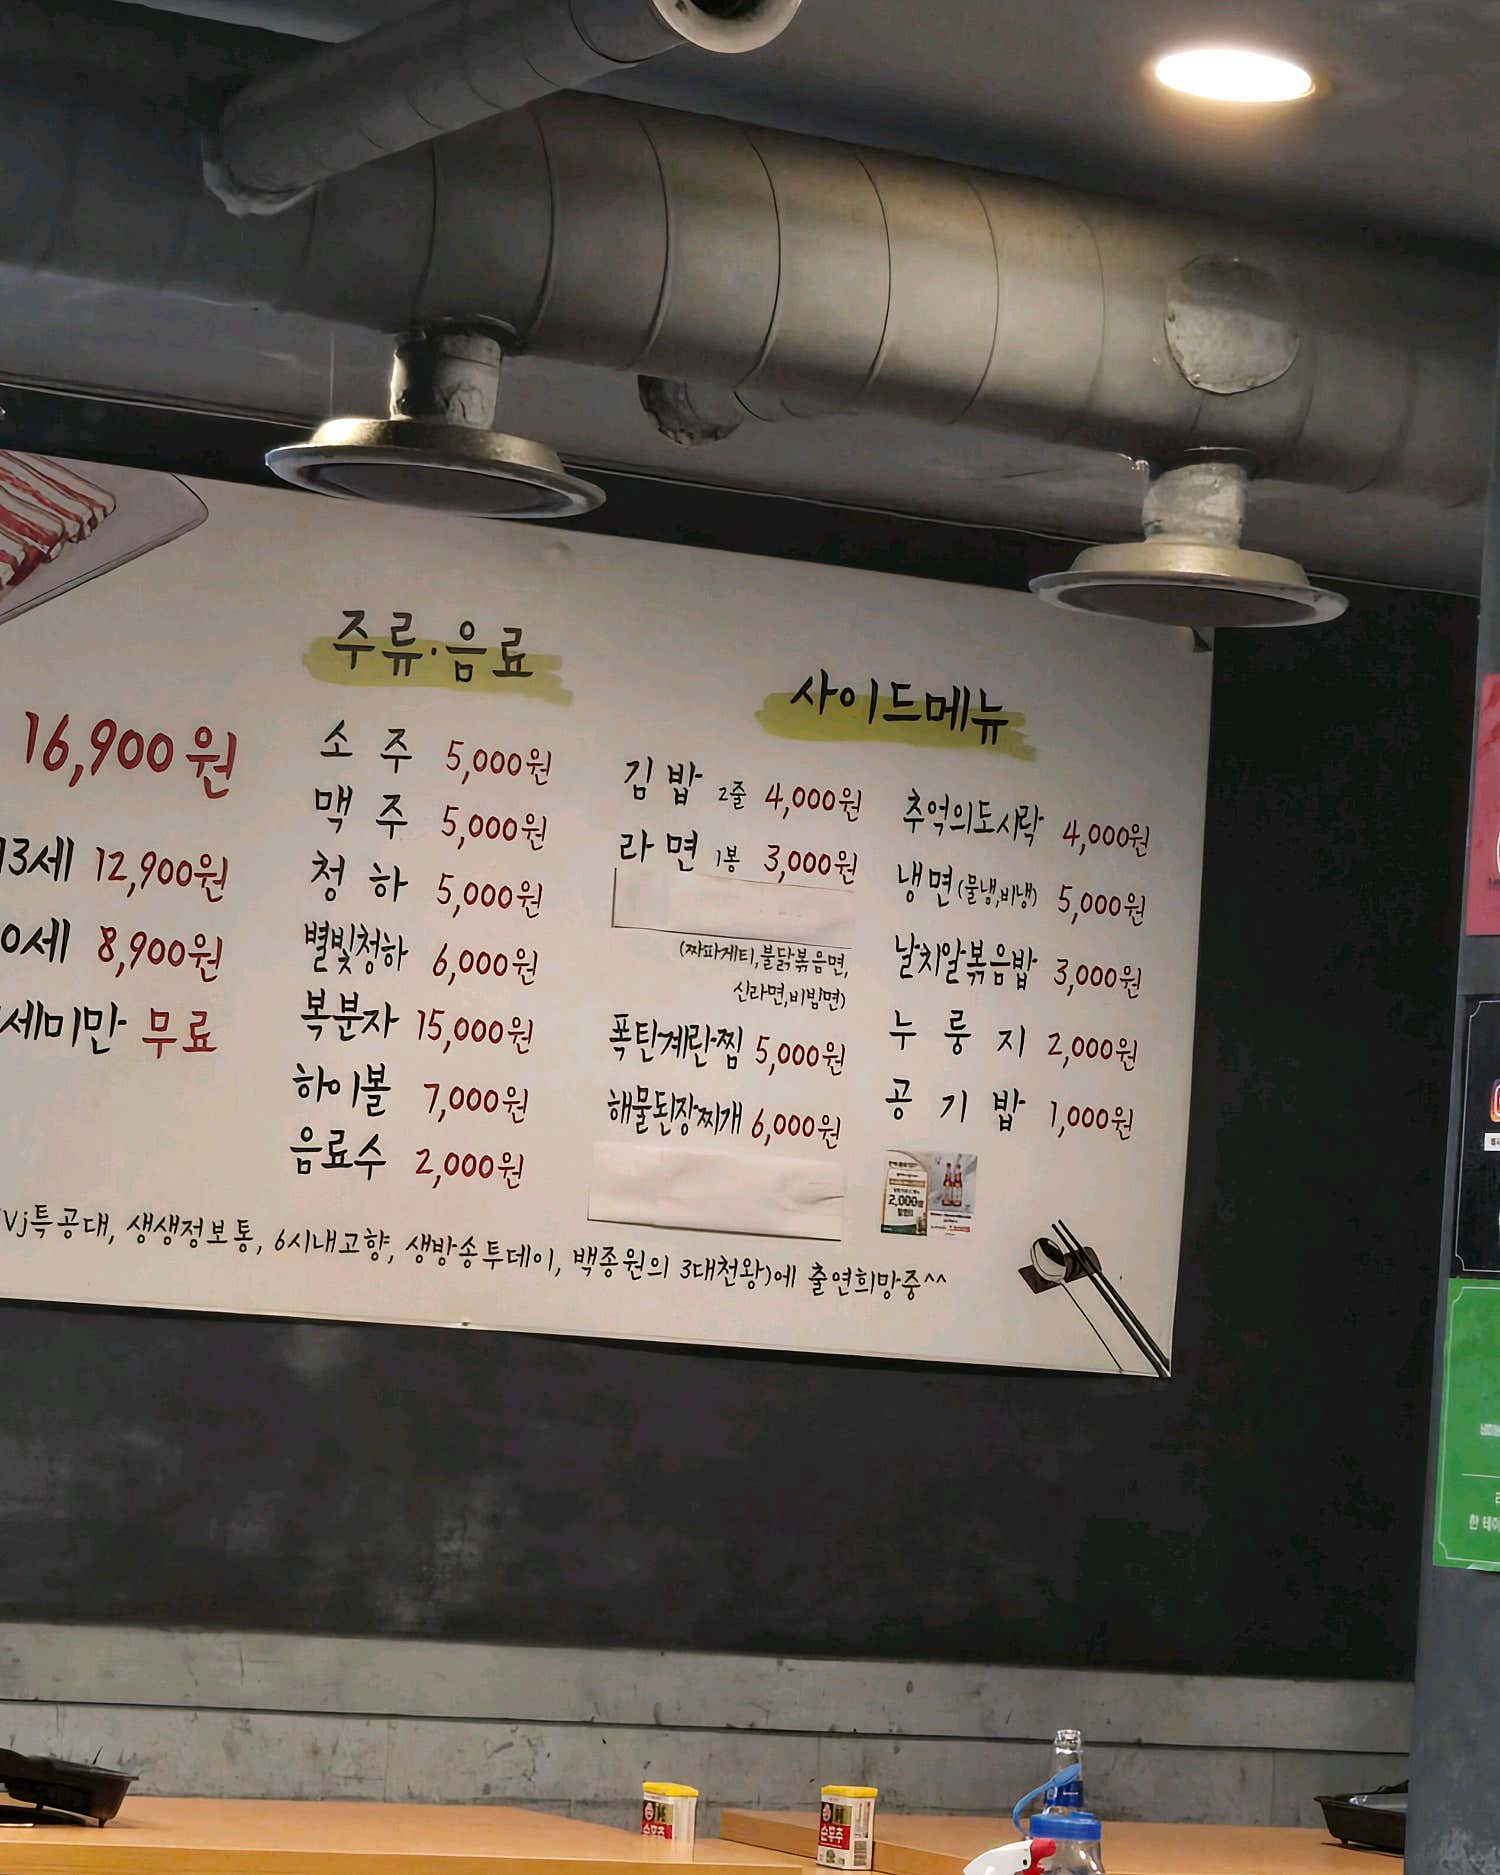 16,900원
13세 12,900원
0세 8,900원
세미만 무료
주류·음료
소주 5,000원
맥주 5,000원
청하 5,000원
별빛청하 6,000원
복분자 15,000원
하이볼 7,000원
음료수 2,000원
사이드메뉴
김밥 2줄 4,000원
라면 1봉 3,000원
(짜파게티,불닭볶음면,
신라면,비빔면)
폭탄계란찜 5,000원
해물된장찌개 6,000원
추억의도시락 4,000원
냉면(물냉,비냉) 5,000원
날치알볶음밥 3,000원
누룽지 2,000원
공기밥 1,000원
2,000원
Vj특공대, 생생정보통, 6시내고향, 생방송투데이, 백종원의 3대천왕)에 출연희망중^^
순후추
순후추
한 테이